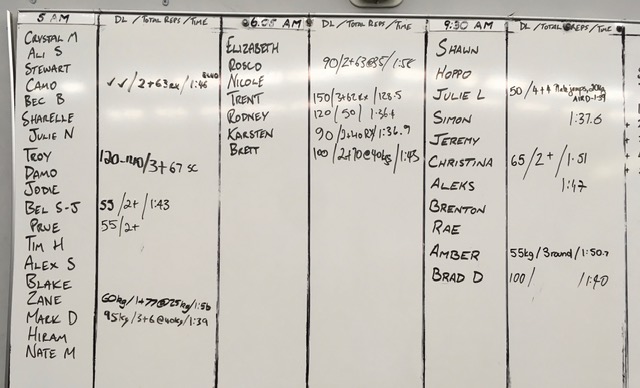 5 AM
DL / TOTAL REPS / TIME
CRYSTAL M
ALI S
STEWART
CAMO ✓✓ / 2+63 RX / 1:46
BEC B
SHARELLE
JULIE N
TROY 120 /3+67 SC
DAMO
JODIE
BEL S-J 55 / 2+ / 1:43
PRUE 55 / 2+
TIM H
ALEX S
BLAKE
ZANE 60kg / 1+77@25kg / 1:56
MARK D 95kg / 3+6@40kg / 1:39
HIRAM
NATE M
06.05 AM
DL / TOTAL REPS / TIME
ELIZABETH
ROSCO 90/2+63@35/1:58
NICOLE
TRENT 150/3+62 RX /1:28.5
RODNEY 120 / 50 / 1:36.4
KARSTEN 90 / 2+40 RX / 1:36.9
BRETT 100 / 2+70@40kg / 1:43
9:30 AM
DL / TOTAL REPS / TIME
SHAWN
HOPPO
JULIE L 50 / 4+4
SIMON 1:37.6
JEREMY
CHRISTINA 65 / 2+ / 1:51
ALEKS 1:47
BRENTON
RAE
AMBER 55kg / 3 round / 1:50.7
BRAD D 100 / / 1:40